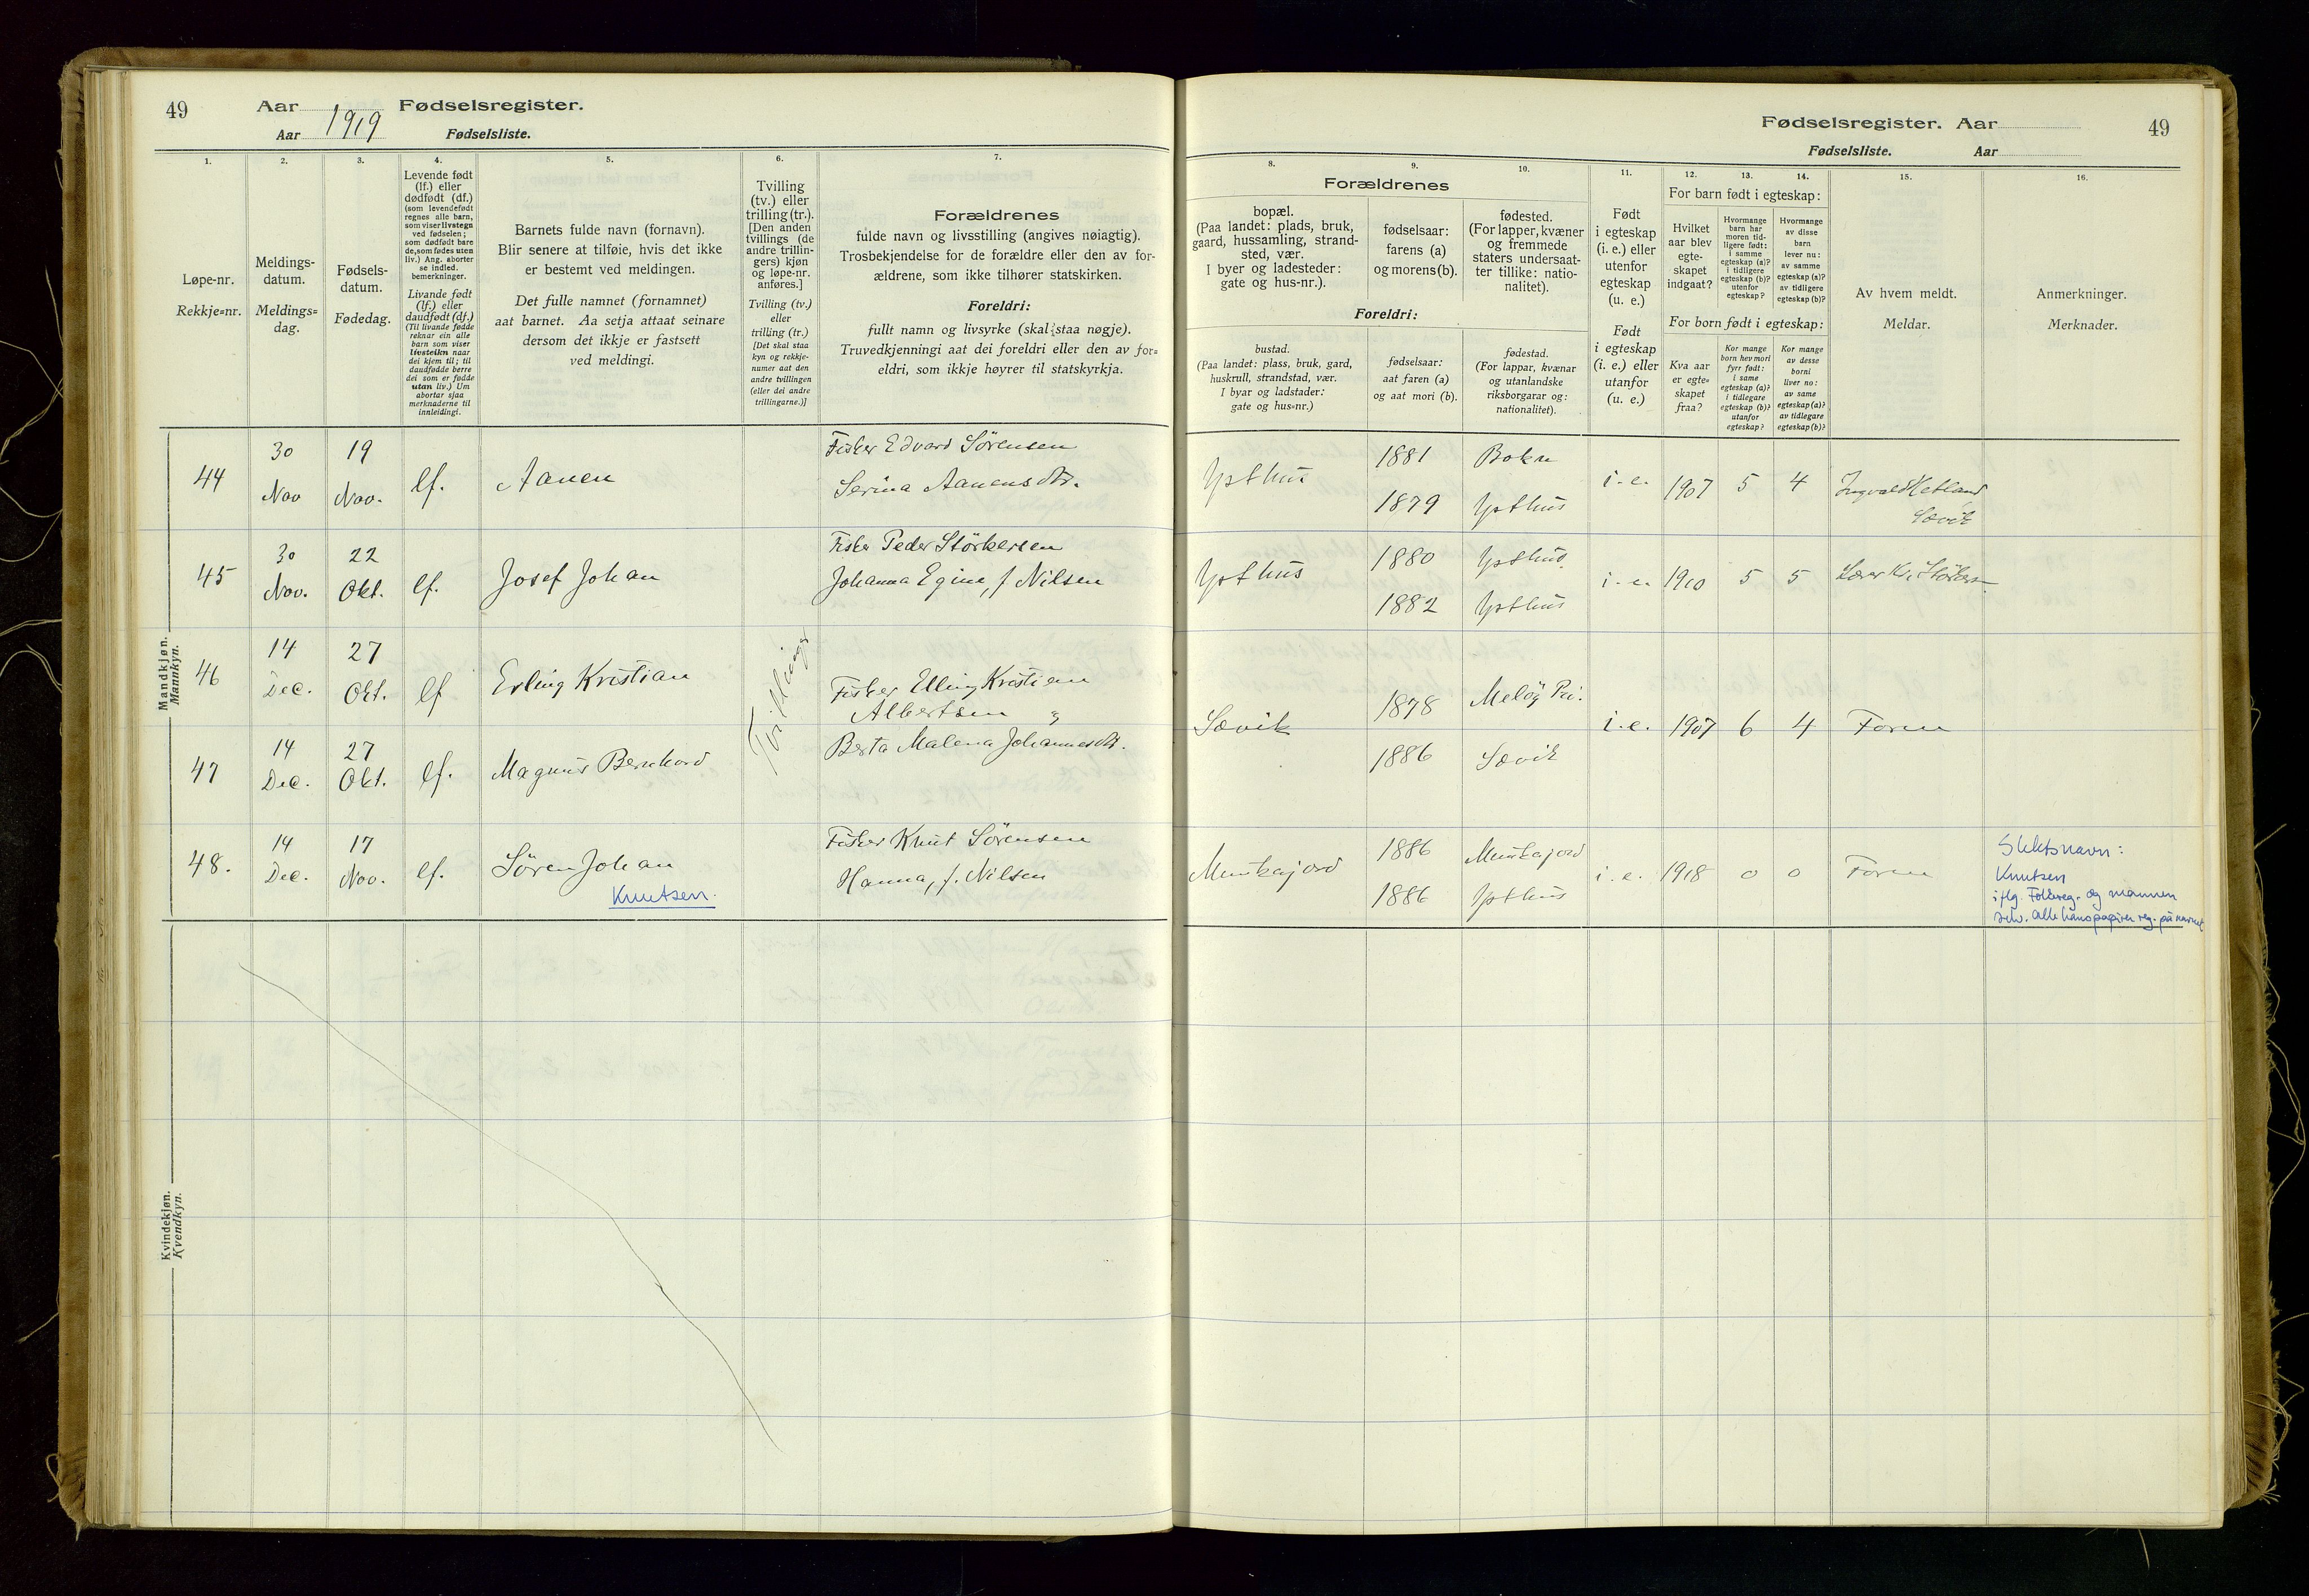 49
Aar Fødselsregister.
Aar 1919 Fødselsliste.
Fødselsregister. Aar
49
Fødselsliste. Aar
1.
Løpe-nr.
Rekkje=nr.
2.
Meldings-
datum.
Meldings=
dag.
3.
Fødsels-
datum.
Fødedag.
4.
Levende født
(lf.) eller
dødfødt (df.)
(som levendefødt
regnes alle barn,
som viser livstegn
ved fødselen;
som dødfødt bare
de, som fødes uten
liv.) Ang. aborter
se indled.
bemerkninger.
Livande født
(lf.) eller
daudfødt (df.)
(Til livande fødde
reknar ein alle
barn som viser
livsteikn naar
dei kjem til; til
daudfødde berre
dei som er fødde
utan liv.) Um
abortar sjaa
merknaderne til
innleidingi.
5.
Barnets fulde navn (fornavn).
Blir senere at tilføie, hvis det ikke
er bestemt ved meldingen.
Det fulle namnet (fornamnet)
aat barnet. Aa setja attaat seinare
dersom det ikkje er fastsett
ved meldingi.
6.
Tvilling
(tv.) eller
trilling (tr.).
[Den anden
tvillings (de
andre trillin-
gers) kjøn
og løpe-nr.
anføres.]
Tvilling (tv.)
eller
trilling (tr.)
[Det skal staa
kyn og rekkje-
numer aat den
andre tvillingen
(eller dei andre
trillingarne.)]
7.
Forældrenes
fulde navn og livsstilling (angives nøiagtig).
Trosbekjendelse for de forældre eller den av for-
ældrene, som ikke tilhører statskirken.
Foreldri:
fullt namn og livsyrke (skal staa nøgje).
Truvedkjenningi aat dei foreldri eller den av for=
eldri, som ikkje høyrer til statskyrkja.
8.
Forældrenes
bopæl.
(Paa landet: plads, bruk,
gaard, hussamling, strand-
sted, vær.
I byer og ladesteder:
gate og hus-nr.).
Foreldri:
bustad.
(Paa landet: plass, bruk, gard,
huskrull, strandstad, vær.
I byar og ladstader:
gate og hus=nr.)
9.
fødselsaar:
farens (a)
og morens (b).
fødselsaar:
aat faren (a)
og aat mori (b).
10.
fødested.
(For lapper, kvæner
og fremmede
staters undersaat-
ter tillike: natio-
nalitet).
fødestad.
(For lappar, kvænar
og utanlandske
riksborgarar og:
nationalitet).
11.
Født
i egteskap
(i. e.) eller
utenfor
egteskap
(u. e.)
Født
i egteskap
(i. e.) eller
utanfor
(u. e.)
12.
For barn født i egteskap:
Hvilket
aar blev
egte-
skapet
indgaat?
For born født i egteskap:
Kva aar
er egte=
skapet
fraa?
13.
Hvormange
barn har
moren tid-
ligere født:
i samme
egteskap (a)?
i tidligere
egteskap (b)?
utenfor
egteskap?
Kor mange
born hev mori
fyrr født:
i same
egteskap (a)?
i tidlegare
egteskap (b)?
utanfor
egteskap?
14.
Hvormange
av disse
barn
lever nu:
av samme
egteskap (a)?
av tidligere
egteskap (b)?
Kor mange
av desse
borni
liver no:
av same
egteskap (a)?
av tidlegare
egteskap (b)?
15.
Av hvem meldt.
Meldar.
16.
Anmerkninger.
Merknader.
Mandkjøn.
Mannkyn.
44
30
Nov
19
Nov.
lf.
Aanen
Fisker Edvard Sörensen
Serina Aanensdtr.
Ysthus
1881
1879
Bokn
Ysthus
i. e.
1907
5
4
Ingvald Hetland
Sævik
45
30
Nov.
22
Okt.
lf.
Josef Johan
Fisker Peder Störkersen
Johanna Egine, f. Nilsen
Ysthus
1880
1882
Ysthus
Ysthus
i. e.
1910
5
5
46
14
Dec.
27
Okt.
lf
Erling Kristian
Tvillinger
Fisker Elling Kristian
Albertsen og
Berta Malena Johannesdtr.
Sævik
1878
1886
Melöy
Sævik
i. e.
1907
6
4
Faren
47
14
Dec.
27
Okt.
lf.
Magnus Bernhard
48.
14
Dec.
17
Nov.
lf.
Sören Johan
Knutsen.
Fisker Knut Sörensen
Hanna, f. Nilsen
Munkajord
1886
1886
Munkajord
Ysthus
i. e.
1918
0
0
Faren
Slektsnavn:
Knutsen
iflg. Folkereg. og mannen
selv. Alle hans papirer reg. på navnet
Kvindekjøn.
Kvendkyn.